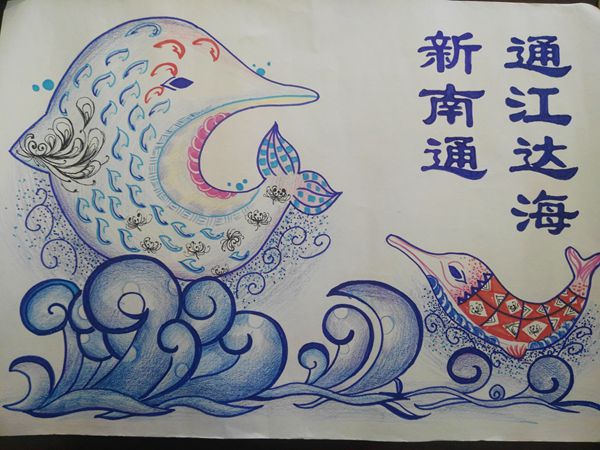 通江达海
新南通